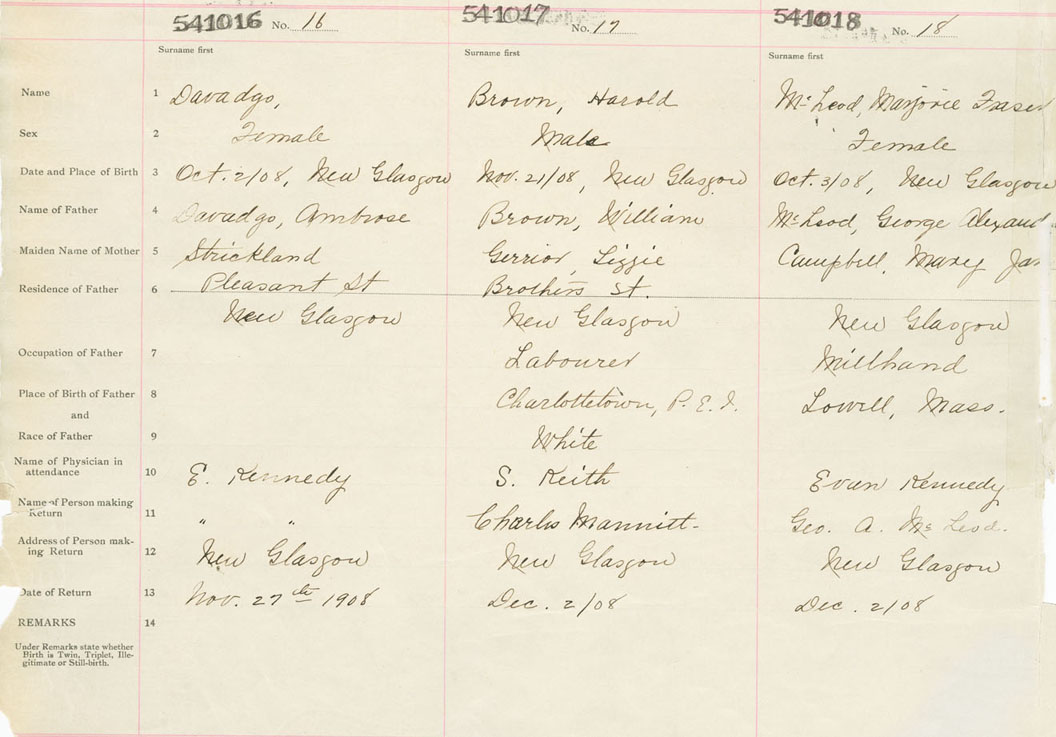 541016 No. 16 541017 No. 17 541018 No. 18
Surname first Surname first Surname first
Name 1 Davadgo, Brown, Harold McLeod, Marjorie Fraser
Sex 2 Female Male Female
Date and Place of Birth 3 Oct. 2/08, New Glasgow Nov. 21/08, New Glasgow Oct. 3/08, New Glasgow
Name of Father 4 Davadgo, Ambrose Brown, William McLeod, George Alexand
Maiden Name of Mother 5 Strickland Gerrior, Lizzie Campbell, Mary Jan
Residence of Father 6 Pleasant St Brothers St.
New Glasgow New Glasgow New Glasgow
Occupation of Father 7 Labourer Millhand
Place of Birth of Father 8 Charlottetown, P.E.I. Lowell, Mass.
and
Race of Father 9 White
Name of Physician in
attendance 10 E. Kennedy S. Keith Evan Kennedy
Name of Person making
Return 11 " " Charles Geo. A. McLeod.
Address of Person mak-
ing Return 12 New Glasgow New Glasgow New Glasgow
Date of Return 13 Nov. 27th 1908 Dec. 2/08 Dec. 2/08
REMARKS 14
Under Remarks state whether
Birth is Twin, Triplet, Ille-
gitimate or Still-birth.